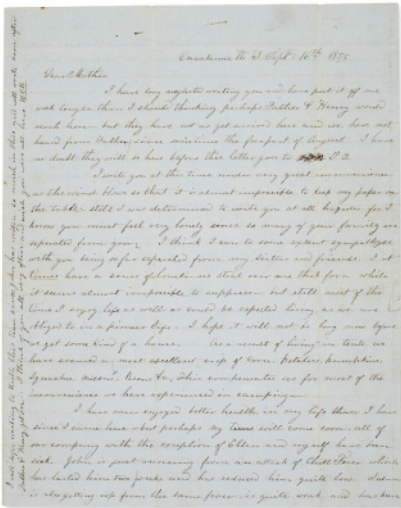 Osawatomie K T Sept. 16th 1855
Dear Mother
I have long neglected writing you and have put it off one
week longer than I should thinking perhaps Father & Henry would
reach here - but they have not as yet arrived here and we have not
heard from Father since sometime the forepart of August. I have
no doubt they will be here before this letter goes to P.O.
I write you at this time under very great inconvenience
as the wind blows so that it is almost impossible to keep my paper on
the table, still I was determined to write you at all hazards for I
know you must feel very lonely since so many of your family are
separated from you. I think I can to some extent sympathize
with you being so far separated from my sisters and friends. I at
times have a sense of loneliness steal over me that for a while
it seems almost impossible to suppress but still most of the
time I enjoy life as well as could be expected living as we are
obliged to in a pioneer life. I hope it will not be long now before
we get some kind of a house. As a result of living in tents we
have secured a most excellent crop of Corn, Potatoes, Pumpkins,
Squashes, Beans &c, this compensates us for most of the
inconvenience we have experienced in camping
I have never enjoyed better health in my life than I have
since I came here but perhaps my turn will come soon. all of
our company with the exception of Ellen and myself have been
sick. John is just recovering from an attack of Chill Fever which
has lasted him two weeks and has reduced him quite low.
is also getting up from the same fever is quite weak and has been